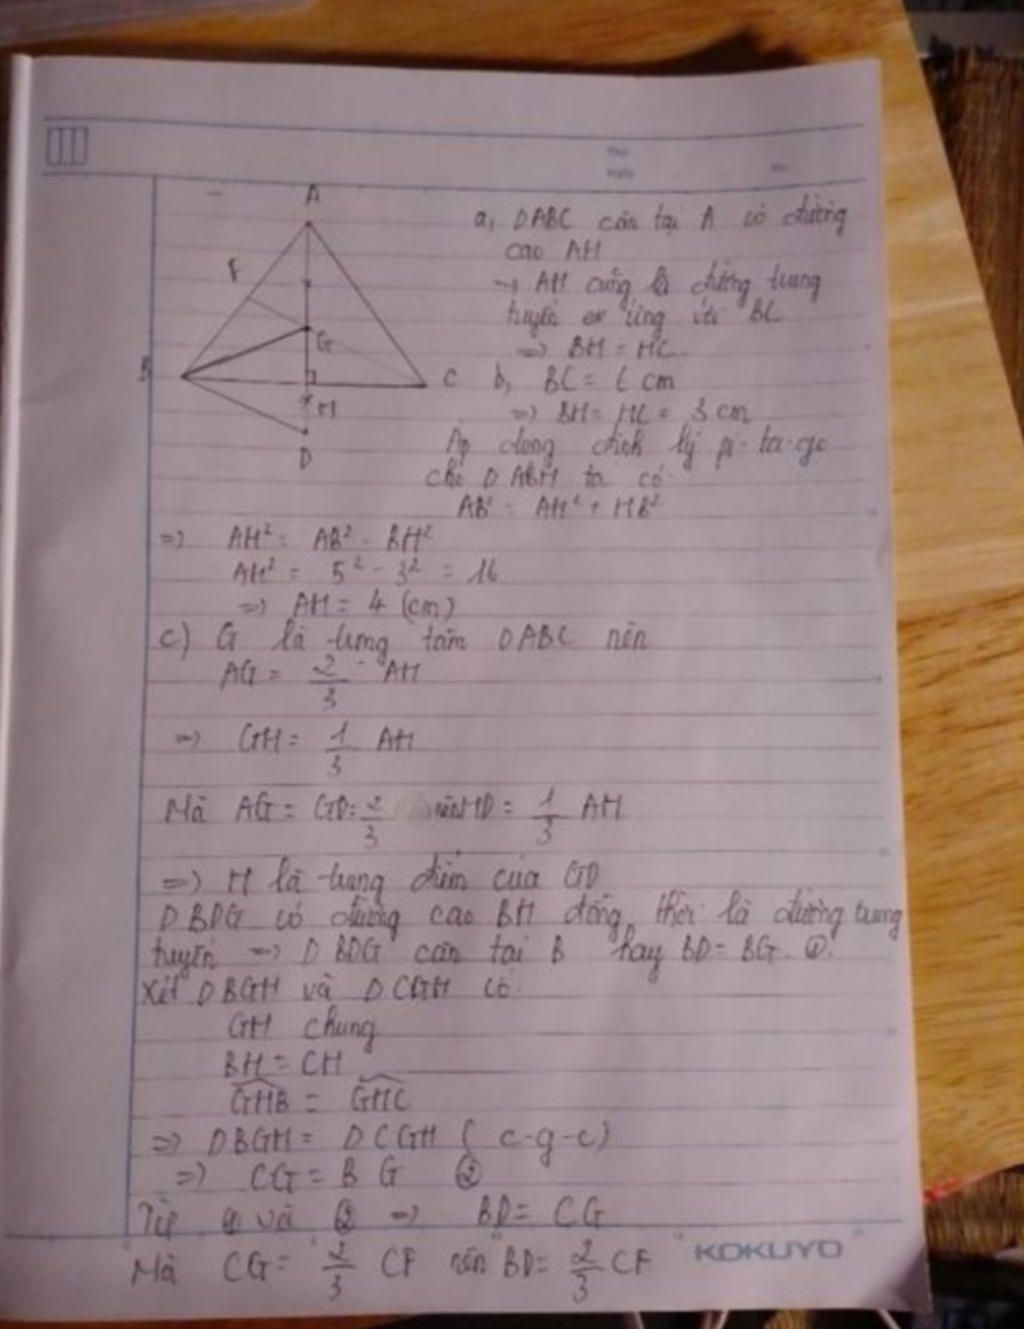 A
F
G
B
C
H
D
a, DABC cân tại A có đường
cao AH
→ AH cũng là đường trung
tuyến ứng với BC
=> BH = HC
b, BC = 6 cm
=> BH = HC = 3 cm
Áp dụng định lý pi-ta-go
cho DABH ta có
AB² = AH² + HB²
=> AH² = AB² - BH²
AH² = 5² - 3² = 16
=> AH = 4 (cm)
c) G là trọng tâm DABC nên
AG = 2/3 AH
=> GH = 1/3 AH
Mà AG = GD = 2/3 nên HD = 1/3 AH
=> H là trung điểm của GD
DBDG có đường cao BH đồng thời là đường trung
tuyến => DBDG cân tại B hay BD = BG. ①
Xét DBGH và DCGH có
GH chung
BH = CH
GHB = GHC
=> DBGH = DCGH (c-g-c)
=> CG = BG ②
Từ ① và ② => BD = CG
Mà CG = 2/3 CF nên BD = 2/3 CF
KOKUYO